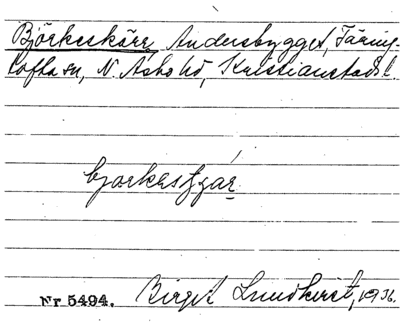 Björkeskärr, Andersbygget, Färing-
tofta sn, N. Åsbo hd, Kristianstads l.
bjorkest
Nr 5494. Birgit Lundkvist, 1936.